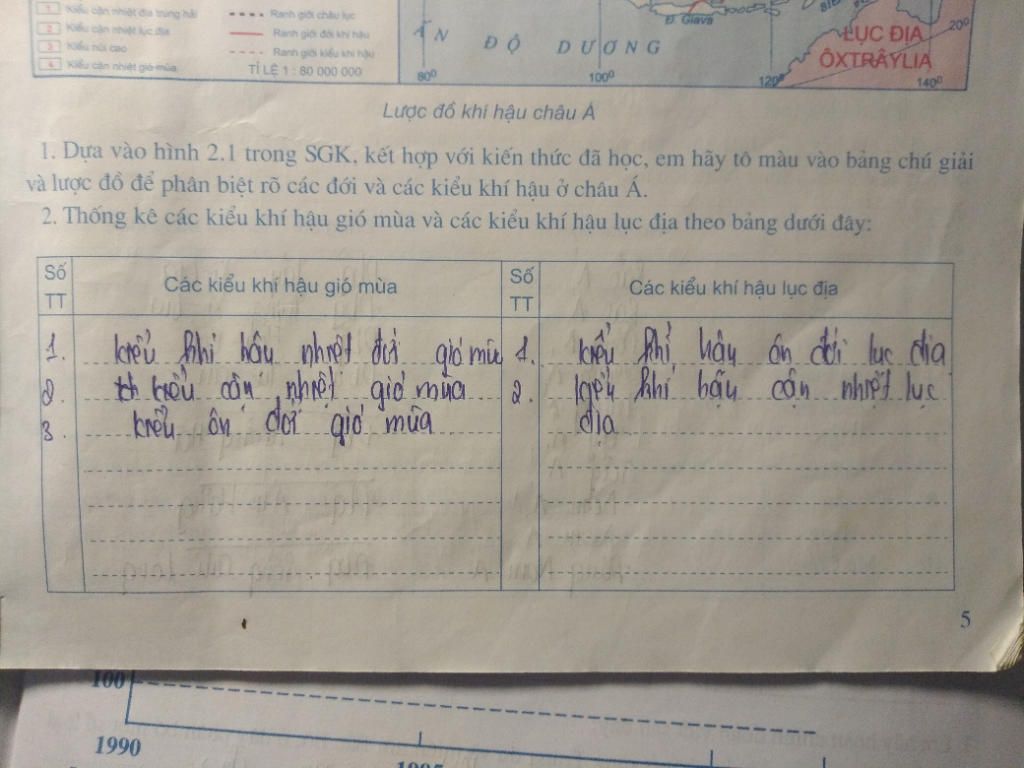 1 Kiểu cận nhiệt địa trung hải
2 Kiểu cận nhiệt lục địa
3 Kiểu núi cao
4 Kiểu cận nhiệt gió mùa
Ranh giới châu lục
Ranh giới đới khí hậu
Ranh giới kiểu khí hậu
TỈ LỆ 1 : 80 000 000
ẤN ĐỘ DƯƠNG
Đ. Giava
LỤC ĐỊA
ÔXTRÂYLIA
80⁰ 100⁰ 120⁰ 140⁰
20⁰
Lược đồ khí hậu châu Á
1. Dựa vào hình 2.1 trong SGK, kết hợp với kiến thức đã học, em hãy tô màu vào bảng chú giải
và lược đồ để phân biệt rõ các đới và các kiểu khí hậu ở châu Á.
2. Thống kê các kiểu khí hậu gió mùa và các kiểu khí hậu lục địa theo bảng dưới đây:
Số TT
Các kiểu khí hậu gió mùa
Số TT
Các kiểu khí hậu lục địa
1. kiểu khí hậu nhiệt đới gió mùa
2. kiểu cận nhiệt gió mùa
3. kiểu ôn đới gió mùa
1. kiểu khí hậu ôn đới lục địa
2. kiểu khí hậu cận nhiệt lục
địa
5
100
1990